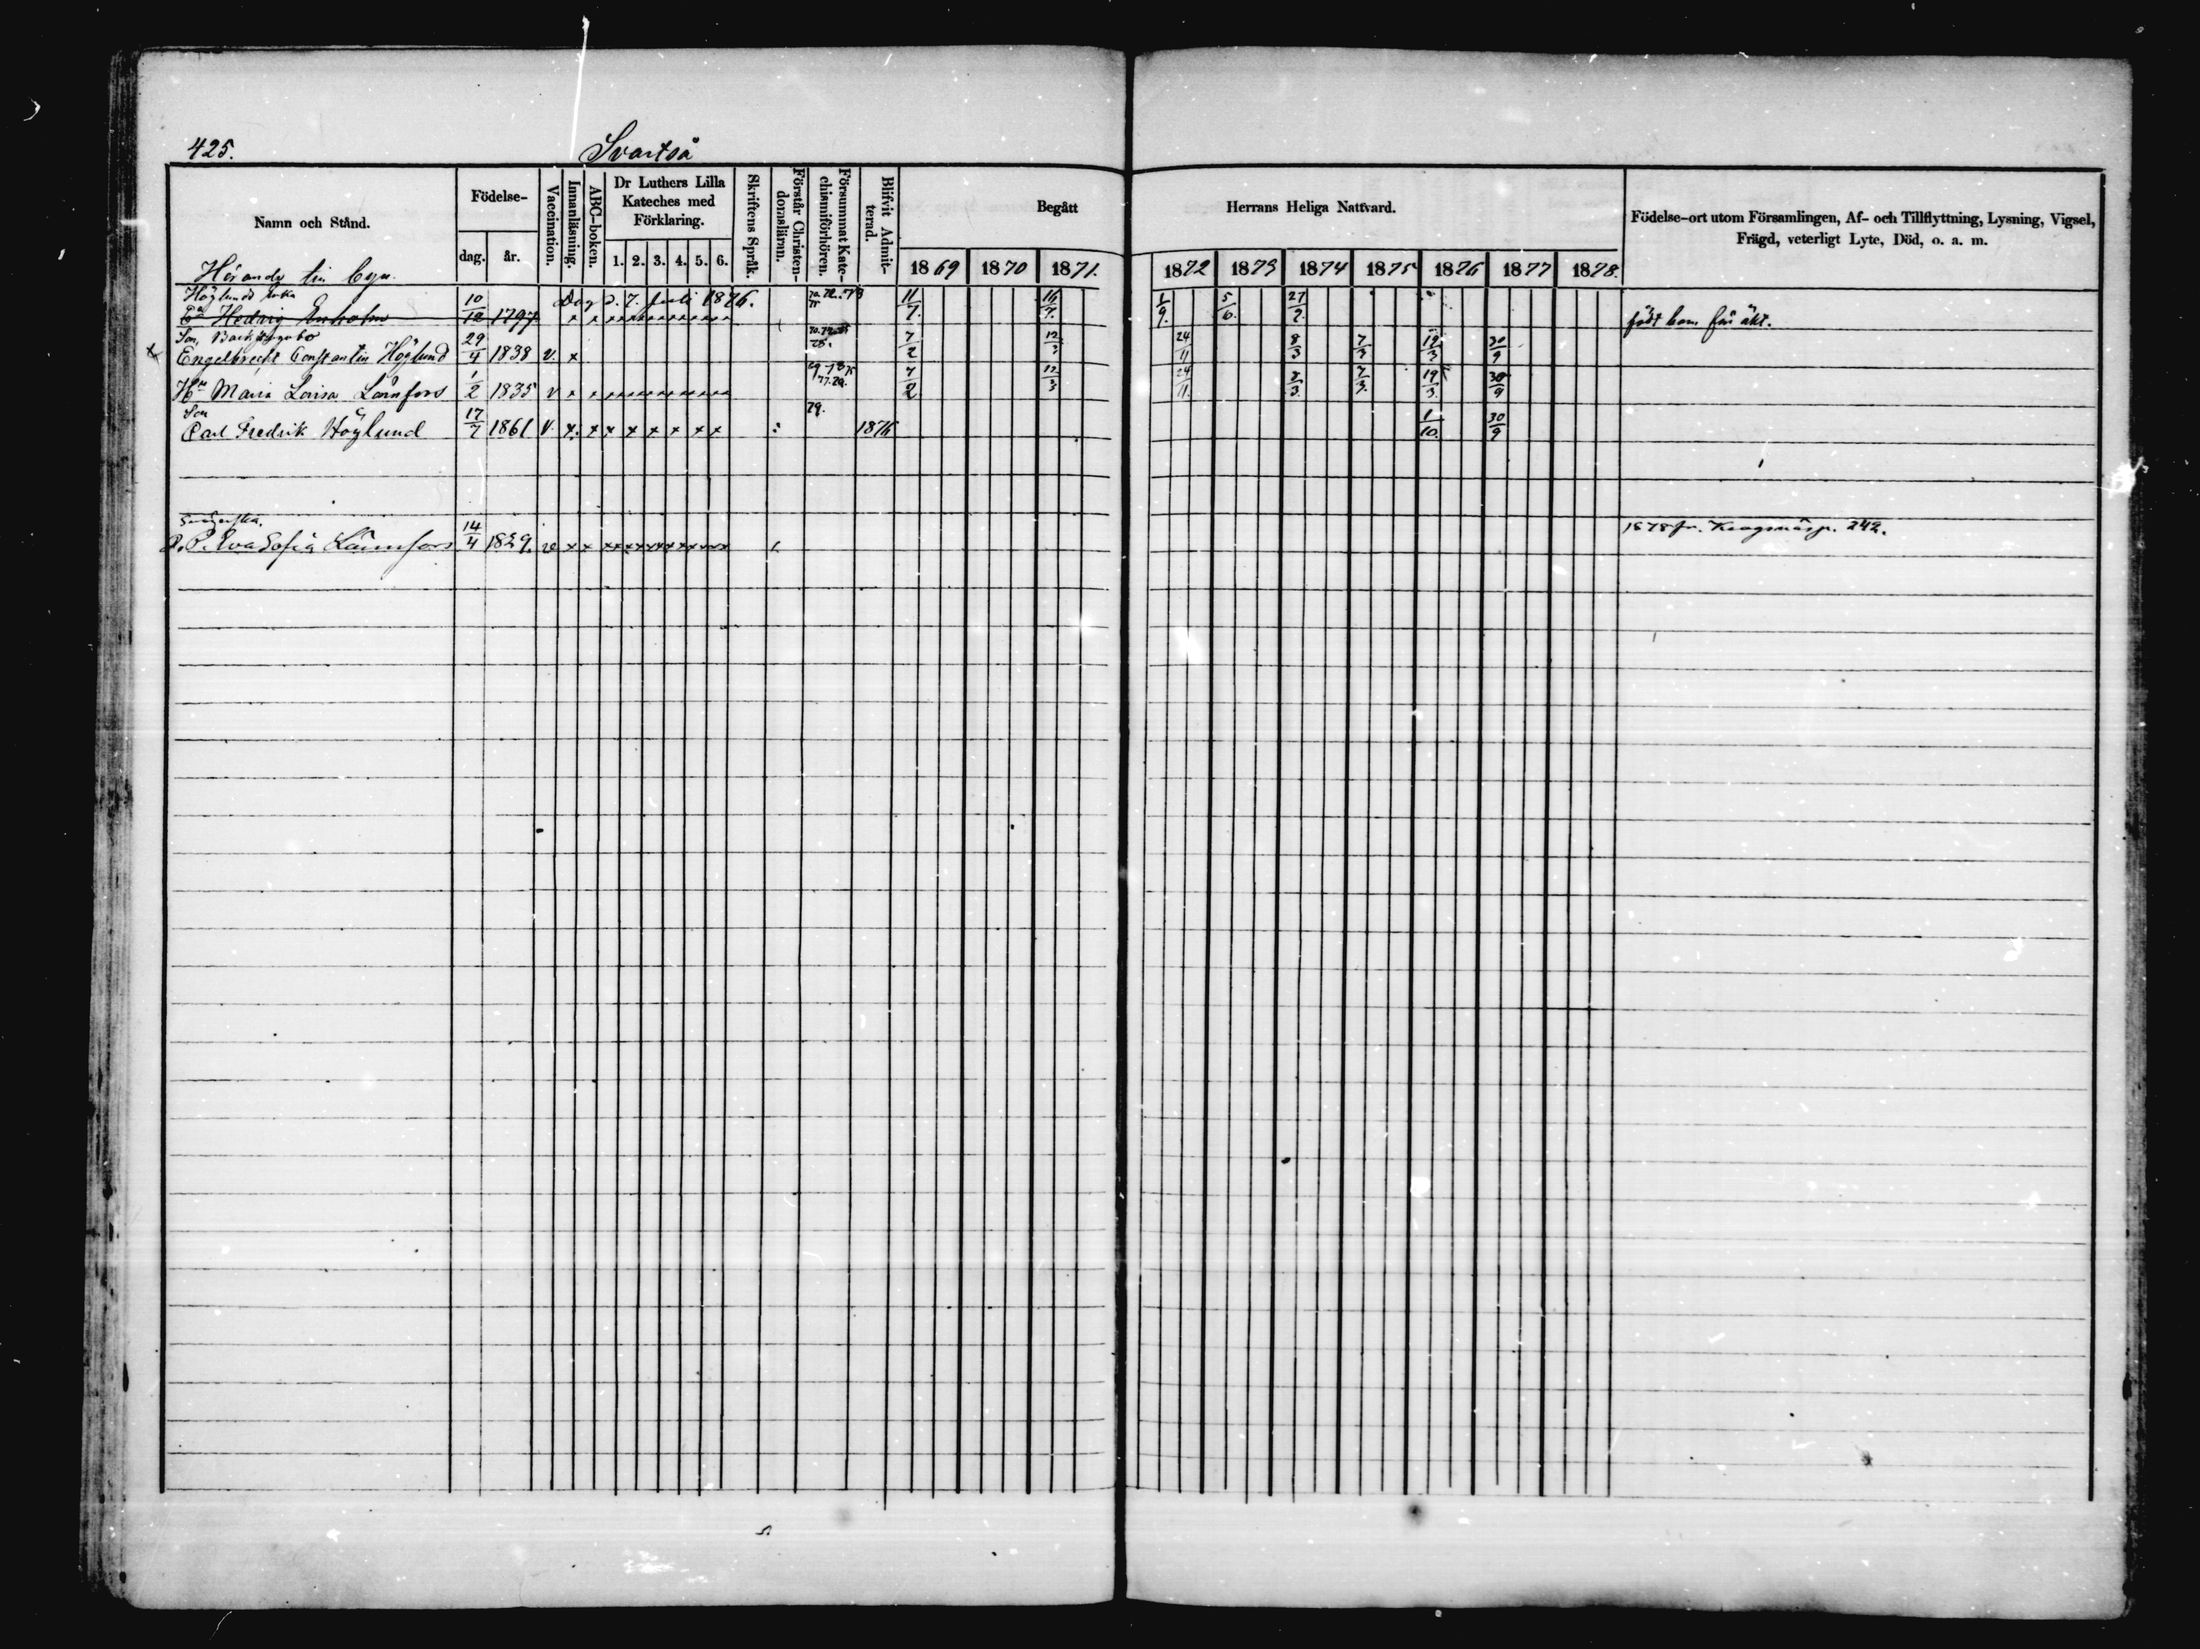 425.
Svartså
Namn och Stånd.
Födelse-
dag.
år.
Vaccination.
Innanläsning.
ABC-boken.
Dr Luthers Lilla
Kateches med
Förklaring.
1. 2. 3. 4. 5. 6.
Skriftens Språk.
Förstår Christen-
domsläran.
Försummat Kate-
chismiförhören.
Blifvit Admit-
terad.
Begått
Herrans Heliga Nattvard.
1869 1870 1871.
1872 1873 1874 1875 1876 1877 1878.
Födelse-ort utom Församlingen, Af- och Tillflyttning, Lysning, Vigsel,
Frägd, veterligt Lyte, Död, o. a. m.
Hörande
Höglunds Enka
Hedvig 10/12 1797 Dog d. 7. Juli 1876. 11/7. 16/7. 1/9. 5/6. 27/9.
Son,
Engelbrecht Constantin Höglund 29/4 1838 V. x 7/2 12/3 24/11 8/3 7/3 19/3 30/9
Hu Maria Lovisa Lönnfors 1/2 1835 V x 7/2 12/3 24/11. 8/3. 7/3 19/3. 30/9
Son
Carl Fredrik Höglund 17/7 1861 V. x. x x x x x x x 79. 1876 1/10. 30/9
P. Eva Sofia Lönnfors 14/4 1829. x x
1878 fr. 242.